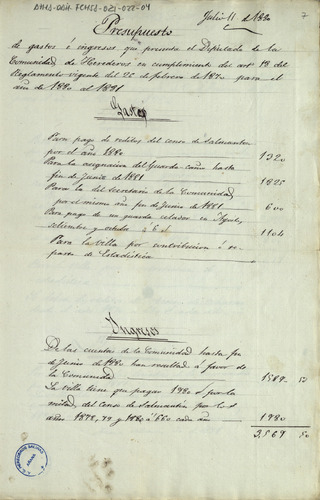 DMH5-004-FCMS1-021-022-04
7
Julio 11 de 1880
Presupuesto
de gastos é ingresos que presenta el Diputado de la
Comunidad de Herederos en cumplimiento del artº 18 del
Reglamento vigente del 26 de febrero de 1870 para el
año de 1880 al 1881
Gastos
Para pago de réditos del censo de Salmantón
por el año 1880 1320
Para la asignativa del Guarda-caños hasta
fin de Junio de 1881 1825
Para la del Secretario de la Comunidad
por el mismo año fin de Junio de 1881 600
Para pago de un guarda celador en Agosto,
setiembre y octubre á 6 1104
Para la Villa por contribucion ó re-
parto de Estadistica
Ingresos
De las cuentas de la Comunidad hasta fin
de Junio de 1880 han resultado á favor de
la Comunidad 1589 50
La Villa tiene que pagar 1980 por la
mitad del censo de Salmantón por los
años 1878, 79 y 1880 á 660 cada año 1980
3,569 50